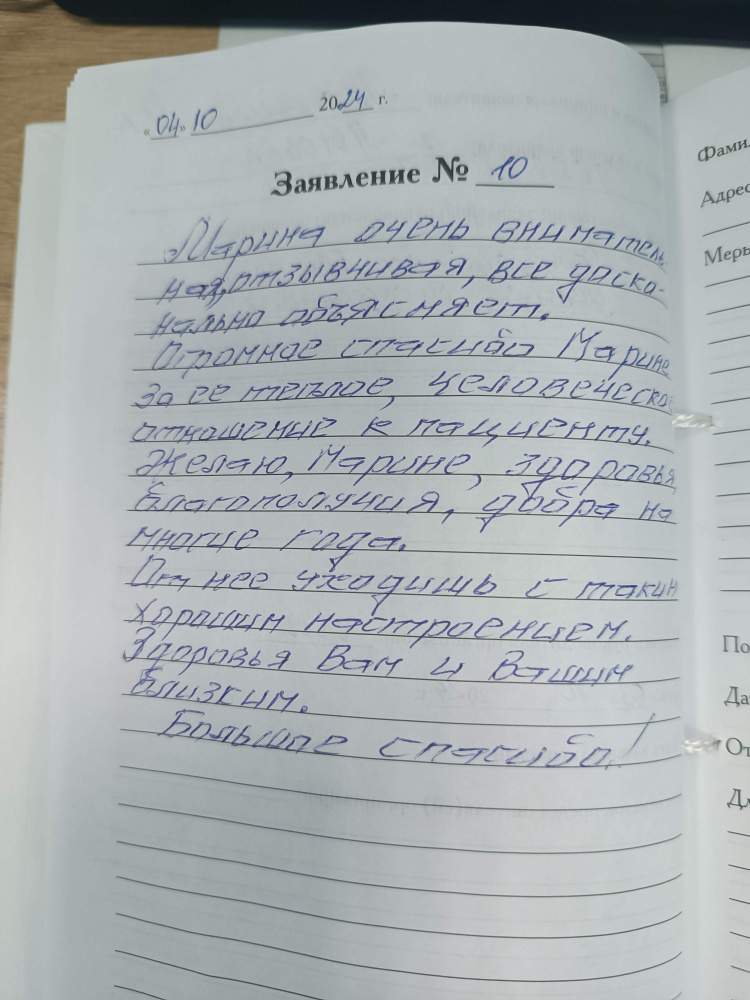 «04» 10 2024 г.
Заявление № 10
Марина очень вниматель
ная, отзывчивая, все доско-
нально объясняет.
Огромное спасибо Марине
за ее теплое, человеческое
отношение к пациенту.
Желаю, Марине, здоровья,
благополучия, добра на
многие года.
От нее уходишь с таким
хорошим настроением.
Здоровья Вам и Вашим
близким.
Большое спасибо!
Фами
Адрес
Меры
По
Да
От
Дл